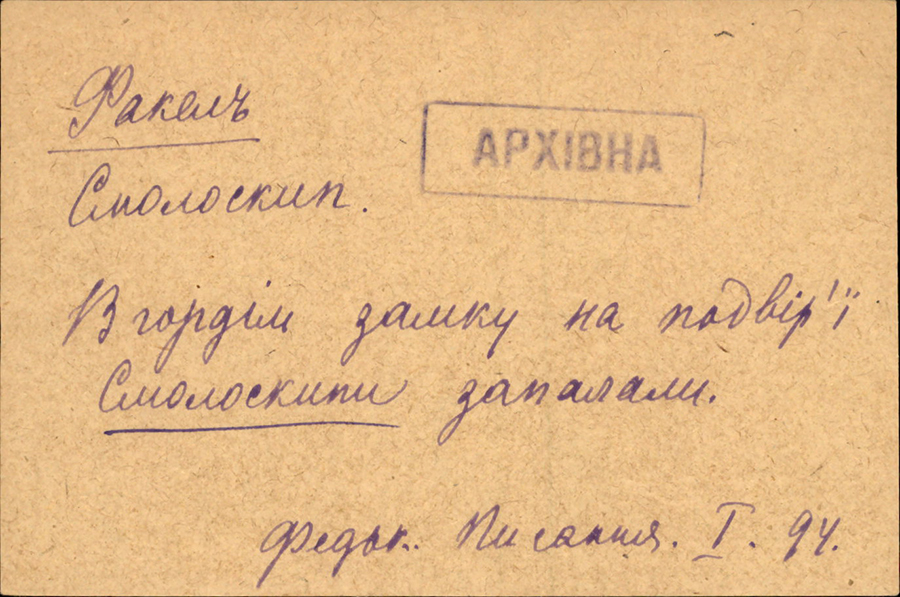 Факелъ
АРХІВНА
Смолоскип.
В гордім замку на подвір'ї
Смолоскипи запалали.
Федьк. Писання. I. 94.